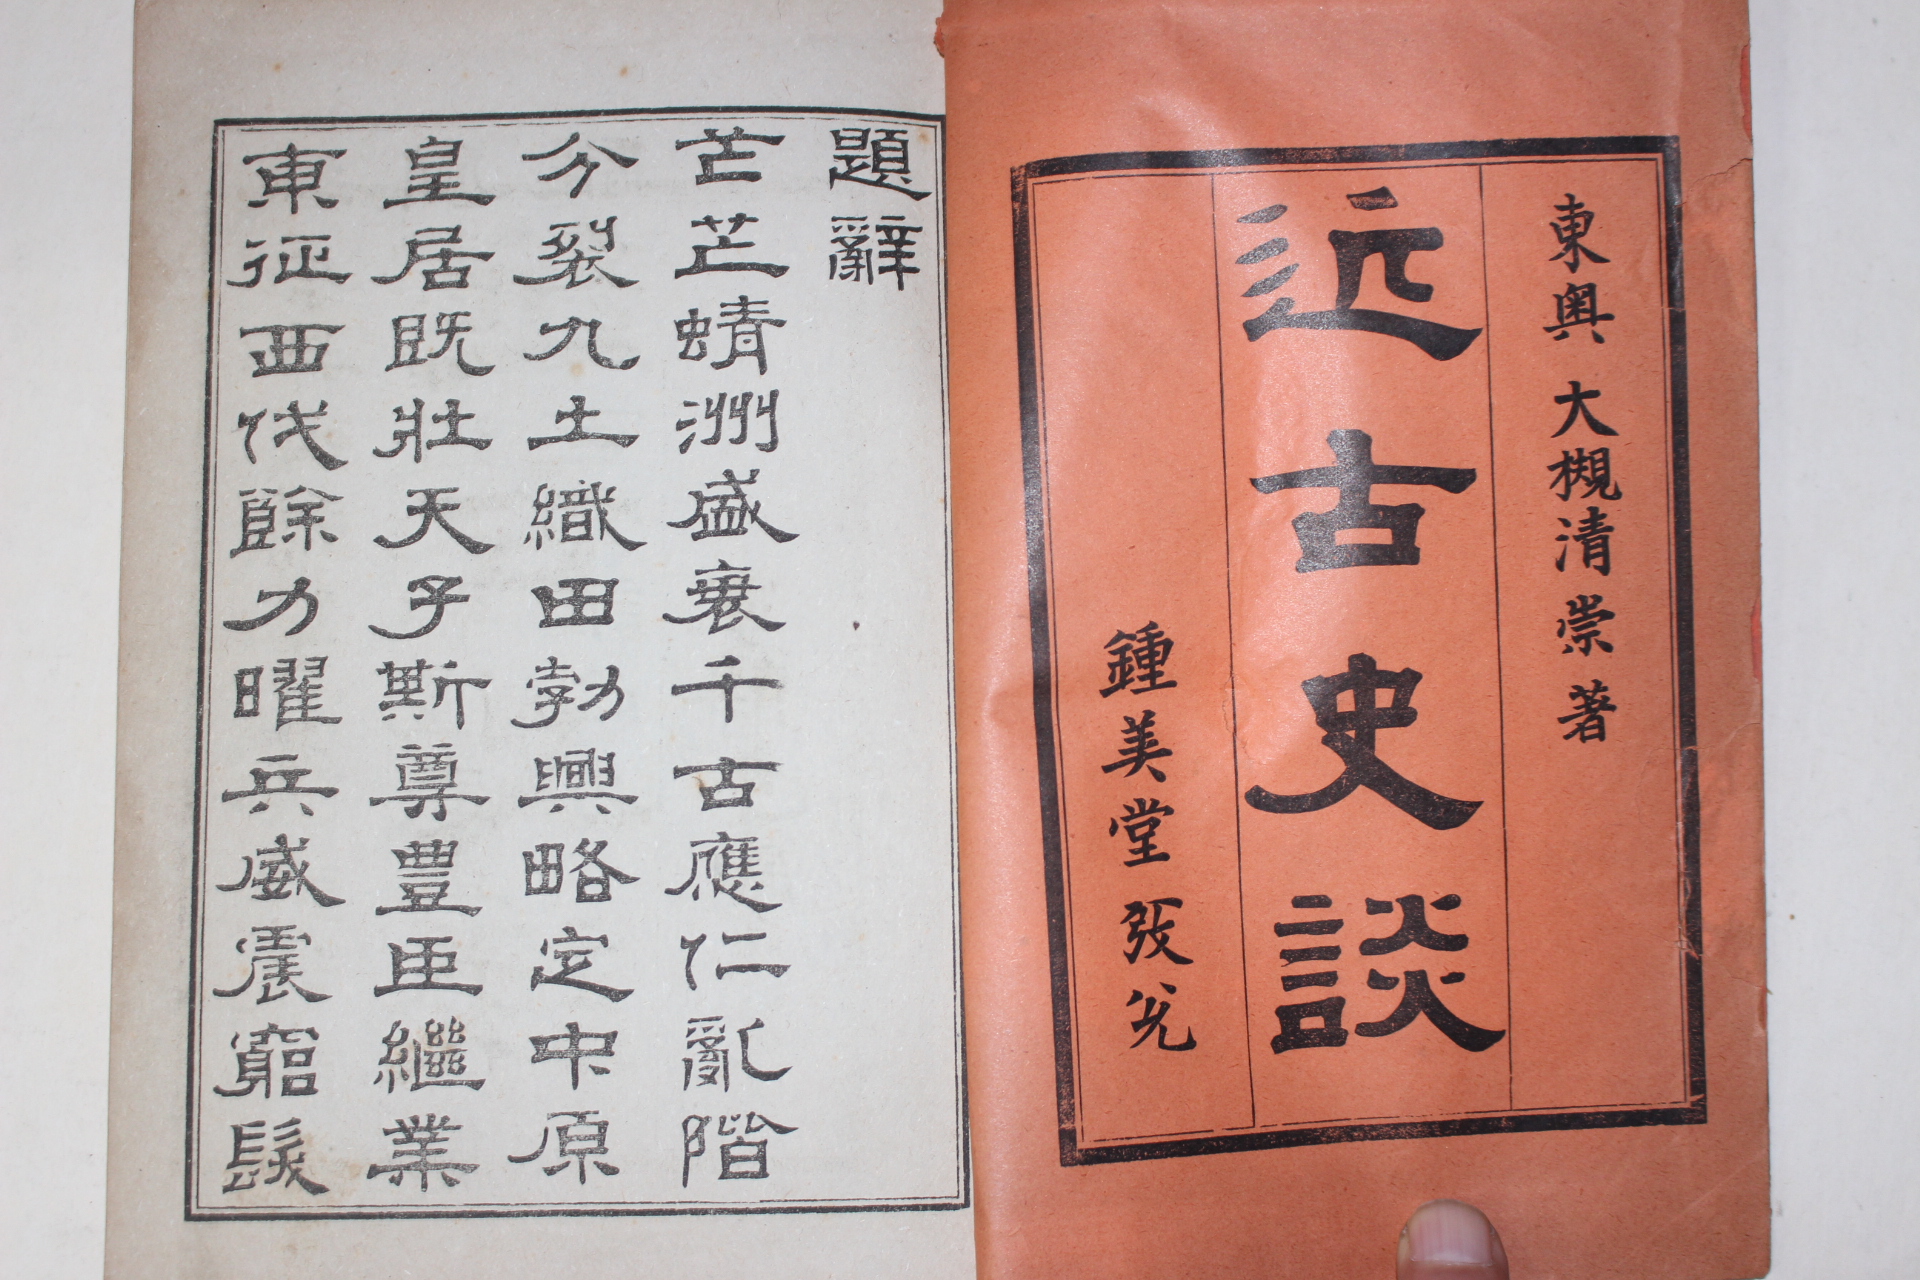 東奥 大槻清崇 著
近古史談
鍾美堂發兌
題辭
芒芒蜻洲盛衰千古應仁亂階
分裂九土織田勃興略定中原
皇居既壯天子斯尊豐臣繼業
東征西伐餘力曜兵威震窮髮